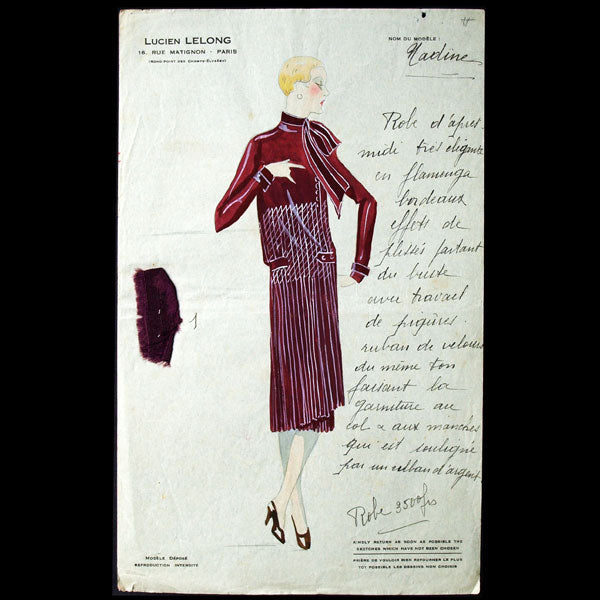 LUCIEN LELONG
16, RUE MATIGNON - PARIS
(ROND-POINT DES CHAMPS-ELYSÉES)
NOM DU MODÈLE :
Nadine
Robe d'après-
midi très élégante
en flamenga
bordeaux
effets de
plissés partant
du buste
avec travail
de piqûres.
ruban de velours
du même ton
faisant la
garniture au
col & aux manches
qui est souligné
par un ruban d'argent
Robe 3500frs
1
KINDLY RETURN AS SOON AS POSSIBLE THE
SKETCHES WHICH HAVE NOT BEEN CHOSEN
PRIÈRE DE VOULOIR BIEN RETOURNER LE PLUS
TOT POSSIBLE LES DESSINS NON CHOISIS
MODÈLE DÉPOSÉ
REPRODUCTION INTERDITE